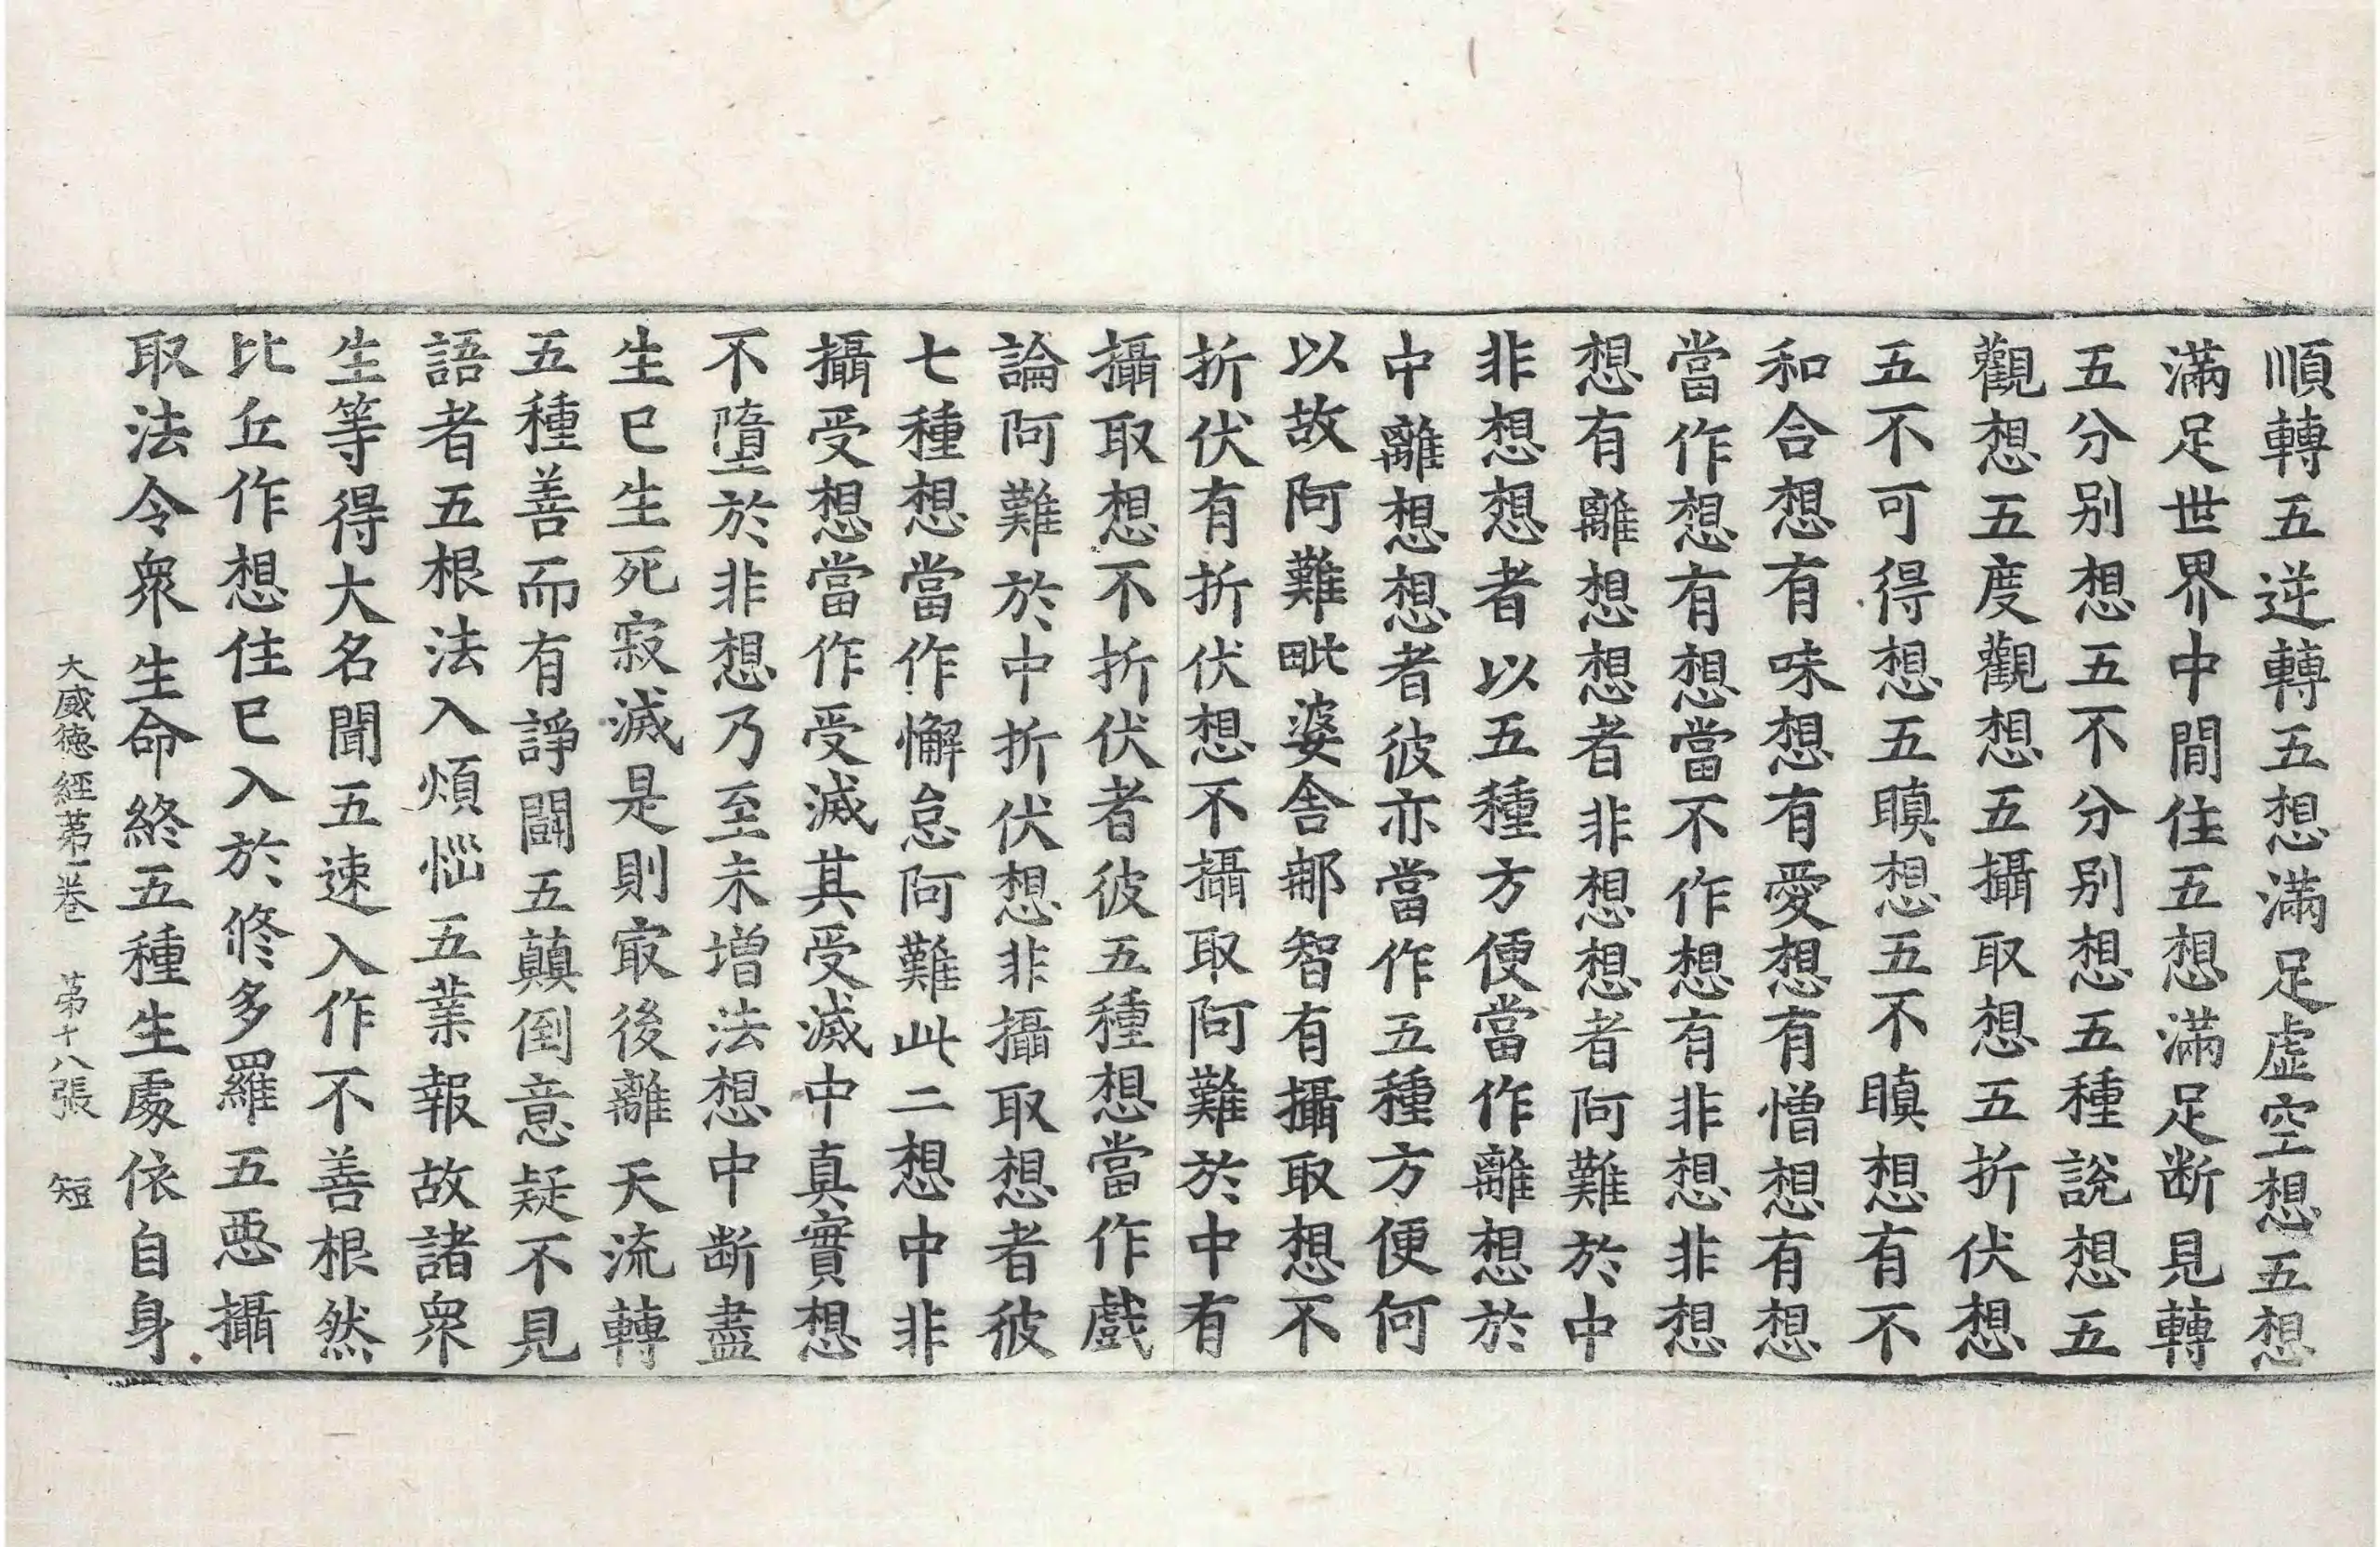 順轉五逆轉五想滿足虛空想五想
滿足世界中閒住五想滿足断見轉
五分别想五不分别想五種說想五
觀想五度觀想五攝取想五折伏想
五不可得想五瞋想五不瞋想有不
和合想有味想有愛想有憎想有想
當作想有想當不作想有非想非想
想有離想想者非想想者阿難於中
非想想者以五種方便當作離想於
中離想想者彼亦當作五種方便何
以故阿難毗婆舍那智有攝取想不
折伏有折伏想不攝取阿難於中有
攝取想不折伏者彼五種想當作戲
論阿難於中折伏想非攝取想者彼
七種想當作懈怠阿難此二想中非
攝受想當作受滅其受滅中真實想
不墮於非想乃至未增法想中断盡
生已生死寂滅是則㝡後離天流轉
五種善而有諍鬪五顛倒意疑不見
語者五根法入煩惱五業報故諸衆
生等得大名聞五速入作不善根然
比丘作想住已入於修多羅五惡攝
取法令衆生命終五種生處依自身
大威德經第一卷　第十八張　短